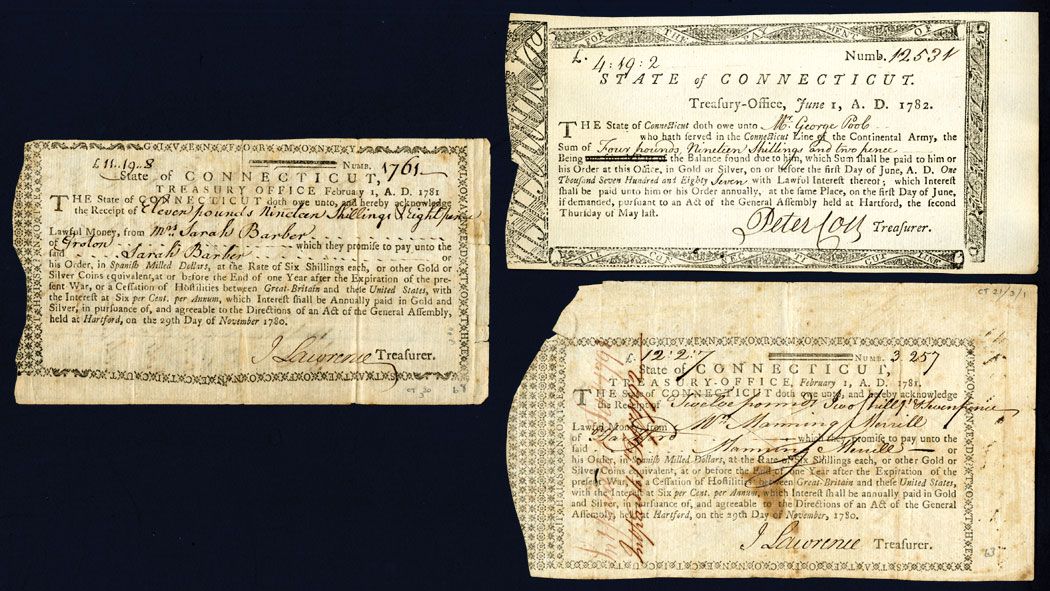 GIVEN FOR MONEY
£11..19..8 NUMB. 1761
State of CONNECTICUT,
TREASURY OFFICE February 1, A. D. 1781
THE State of CONNECTICUT doth owe unto, and hereby acknowledge
the Receipt of Eleven pounds Nineteen Shillings & Eight pence
Lawful Money, from Mrs. Sarah Barber
of Groton which they promise to pay unto the
said Sarah Barber or
his Order, in Spanish Milled Dollars, at the Rate of Six Shillings each, or other Gold or
Silver Coins equivalent, at or before the End of one Year after the Expiration of the pre-
sent War, or a Cessation of Hostilities between Great-Britain and these United States, with
the Interest at Six per Cent. per Annum, which Interest shall be Annually paid in Gold and
Silver, in pursuance of, and agreeable to the Directions of an Act of the General Assembly,
held at Hartford, on the 29th Day of November 1780.
J Lawrence Treasurer.
FOR THE PAYMENT OF
Numb. 12531
£. 4:19:2
STATE of CONNECTICUT.
Treasury-Office, June 1, A. D. 1782.
THE State of Connecticut doth owe unto Mr. George Pool
who hath served in the Connecticut Line of the Continental Army, the
Sum of Four pounds, Nineteen Shillings and two pence
Being the Balance found due to him, which Sum shall be paid to him or
his Order at this Office, in Gold or Silver, on or before the first Day of June, A. D. One
Thousand Seven Hundred and Eighty Seven with Lawful Interest thereof; which Interest
shall be paid unto him or his Order annually, at the same Place, on the first Day of June,
if demanded, pursuant to an Act of the General Assembly held at Hartford, the second
Thursday of May last.
Peter Colt Treasurer.
CT 21/3/1
GIVEN FOR MONEY
£. 12:2:7 NUMB. 3257
State of CONNECTICUT,
TREASURY-OFFICE, February 1, A. D. 1781.
THE State of CONNECTICUT doth owe unto, and hereby acknowledge
the Receipt of Twelve pounds Two Shills & Seven pence
Lawful Money, from Mr. Manning Merrill
of Hartford which they promise to pay unto the
said Manning Merrill or
his Order, in Spanish Milled Dollars, at the Rate of Six Shillings each, or other Gold or
Silver Coins equivalent, at or before the End of one Year after the Expiration of the
present War, or a Cessation of Hostilities between Great-Britain and these United States,
with the Interest at Six per Cent. per Annum, which Interest shall be annually paid in Gold
and Silver, in pursuance of, and agreeable to the Directions of an Act of the General
Assembly, held at Hartford, on the 29th Day of November, 1780.
J Lawrence Treasurer.
63